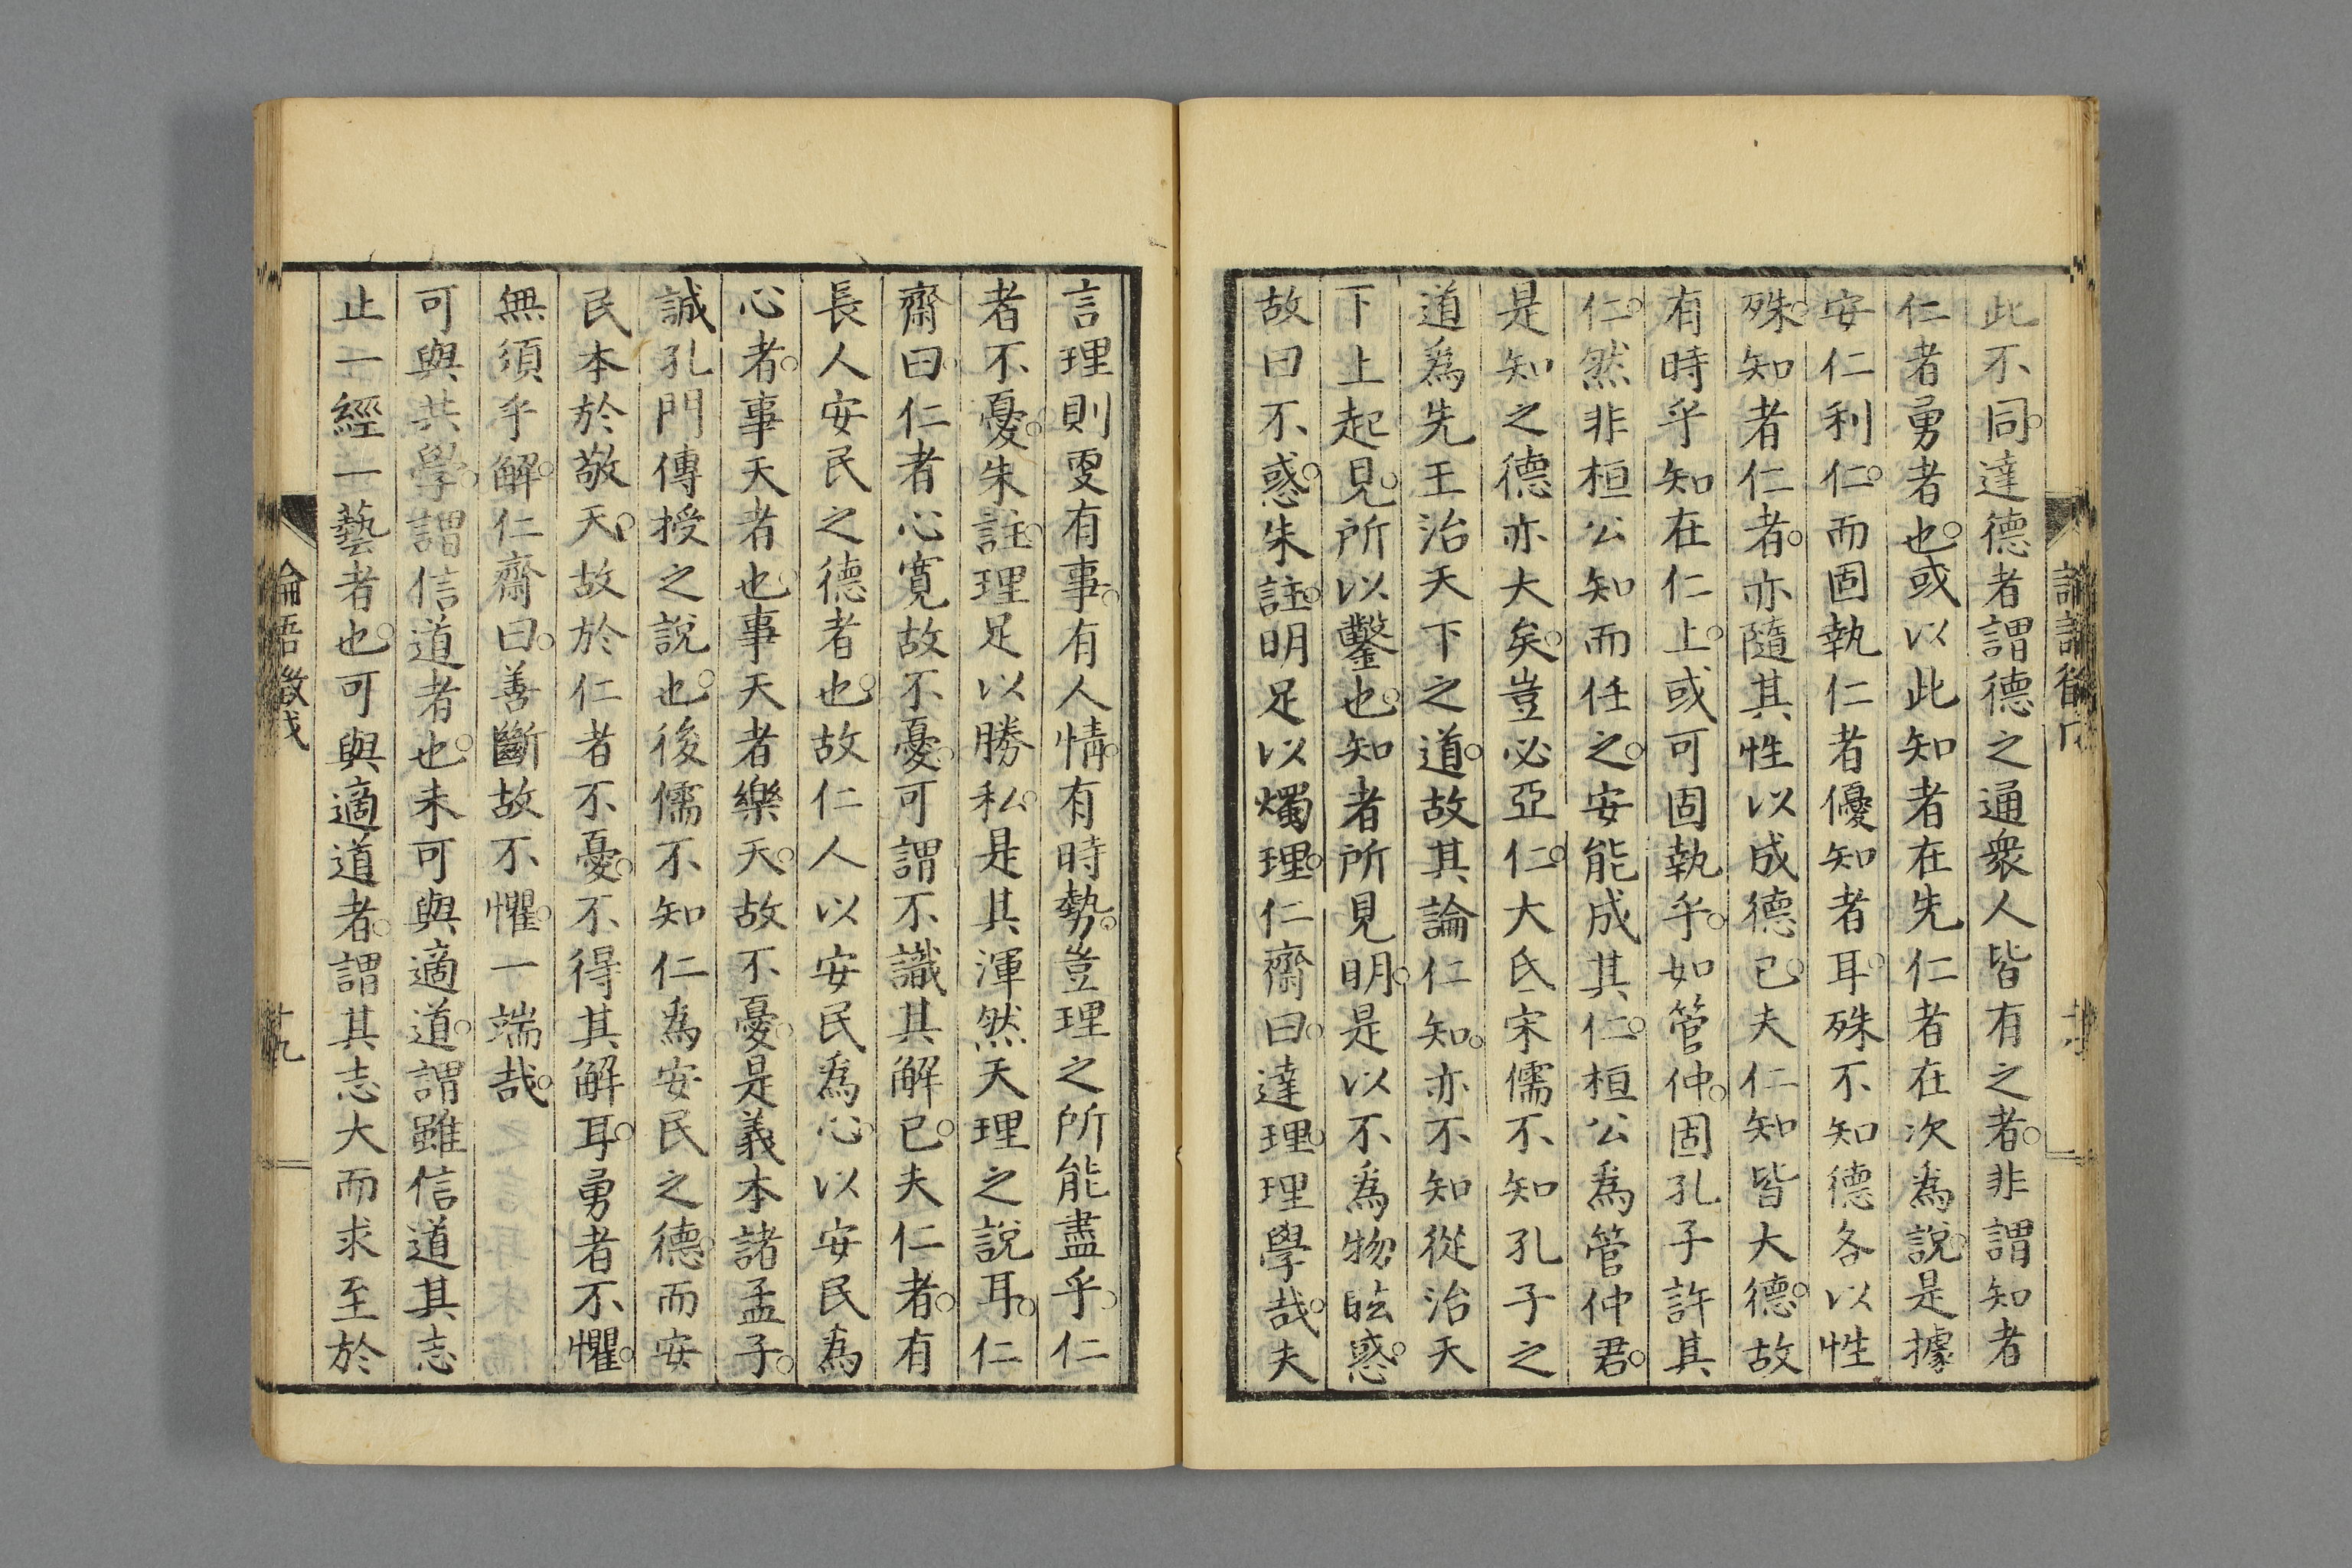 此不同。達德者謂德之通衆人皆有之者。非謂知者
仁者勇者也。或以此知者在先仁者在次為說。是據
安仁利仁。而固執仁者優知者耳。殊不知德各以性
殊。知者仁者。亦隨其性以成德已。夫仁知皆大德。故
有時乎知在仁上。或可固執乎。如管仲。固孔子許其
仁。然非桓公知而任之。安能成其仁。桓公為管仲君。
是知之德亦大矣。豈必亞仁。大氐宋儒不知孔子之
道為先王治天下之道。故其論仁知。亦不知從治天
下上起見。所以鑿也。知者所見明。是以不為物眩惑。
故曰不惑。朱註。明足以燭理。仁齋曰。達理。理學哉。夫
言理則更有事。有人情。有時勢。豈理之所能盡乎。仁
者不憂。朱註。理足以勝私。是其渾然天理之說耳。仁
齋曰。仁者心寬故不憂。可謂不識其解已。夫仁者。有
長人安民之德者也。故仁人以安民為心。以安民為
心者。事天者也。事天者樂天。故不憂。是義本諸孟子。
誠孔門傳授之說也。後儒不知仁為安民之德。而安
民本於敬天。故於仁者不憂。不得其解耳。勇者不懼。
無須乎解。仁齋曰。善斷故不懼。一端哉。
可與共學。謂信道者也。未可與適道。謂雖信道其志
止一經一藝者也。可與適道者。謂其志大而求至於
論語徵戊
十九